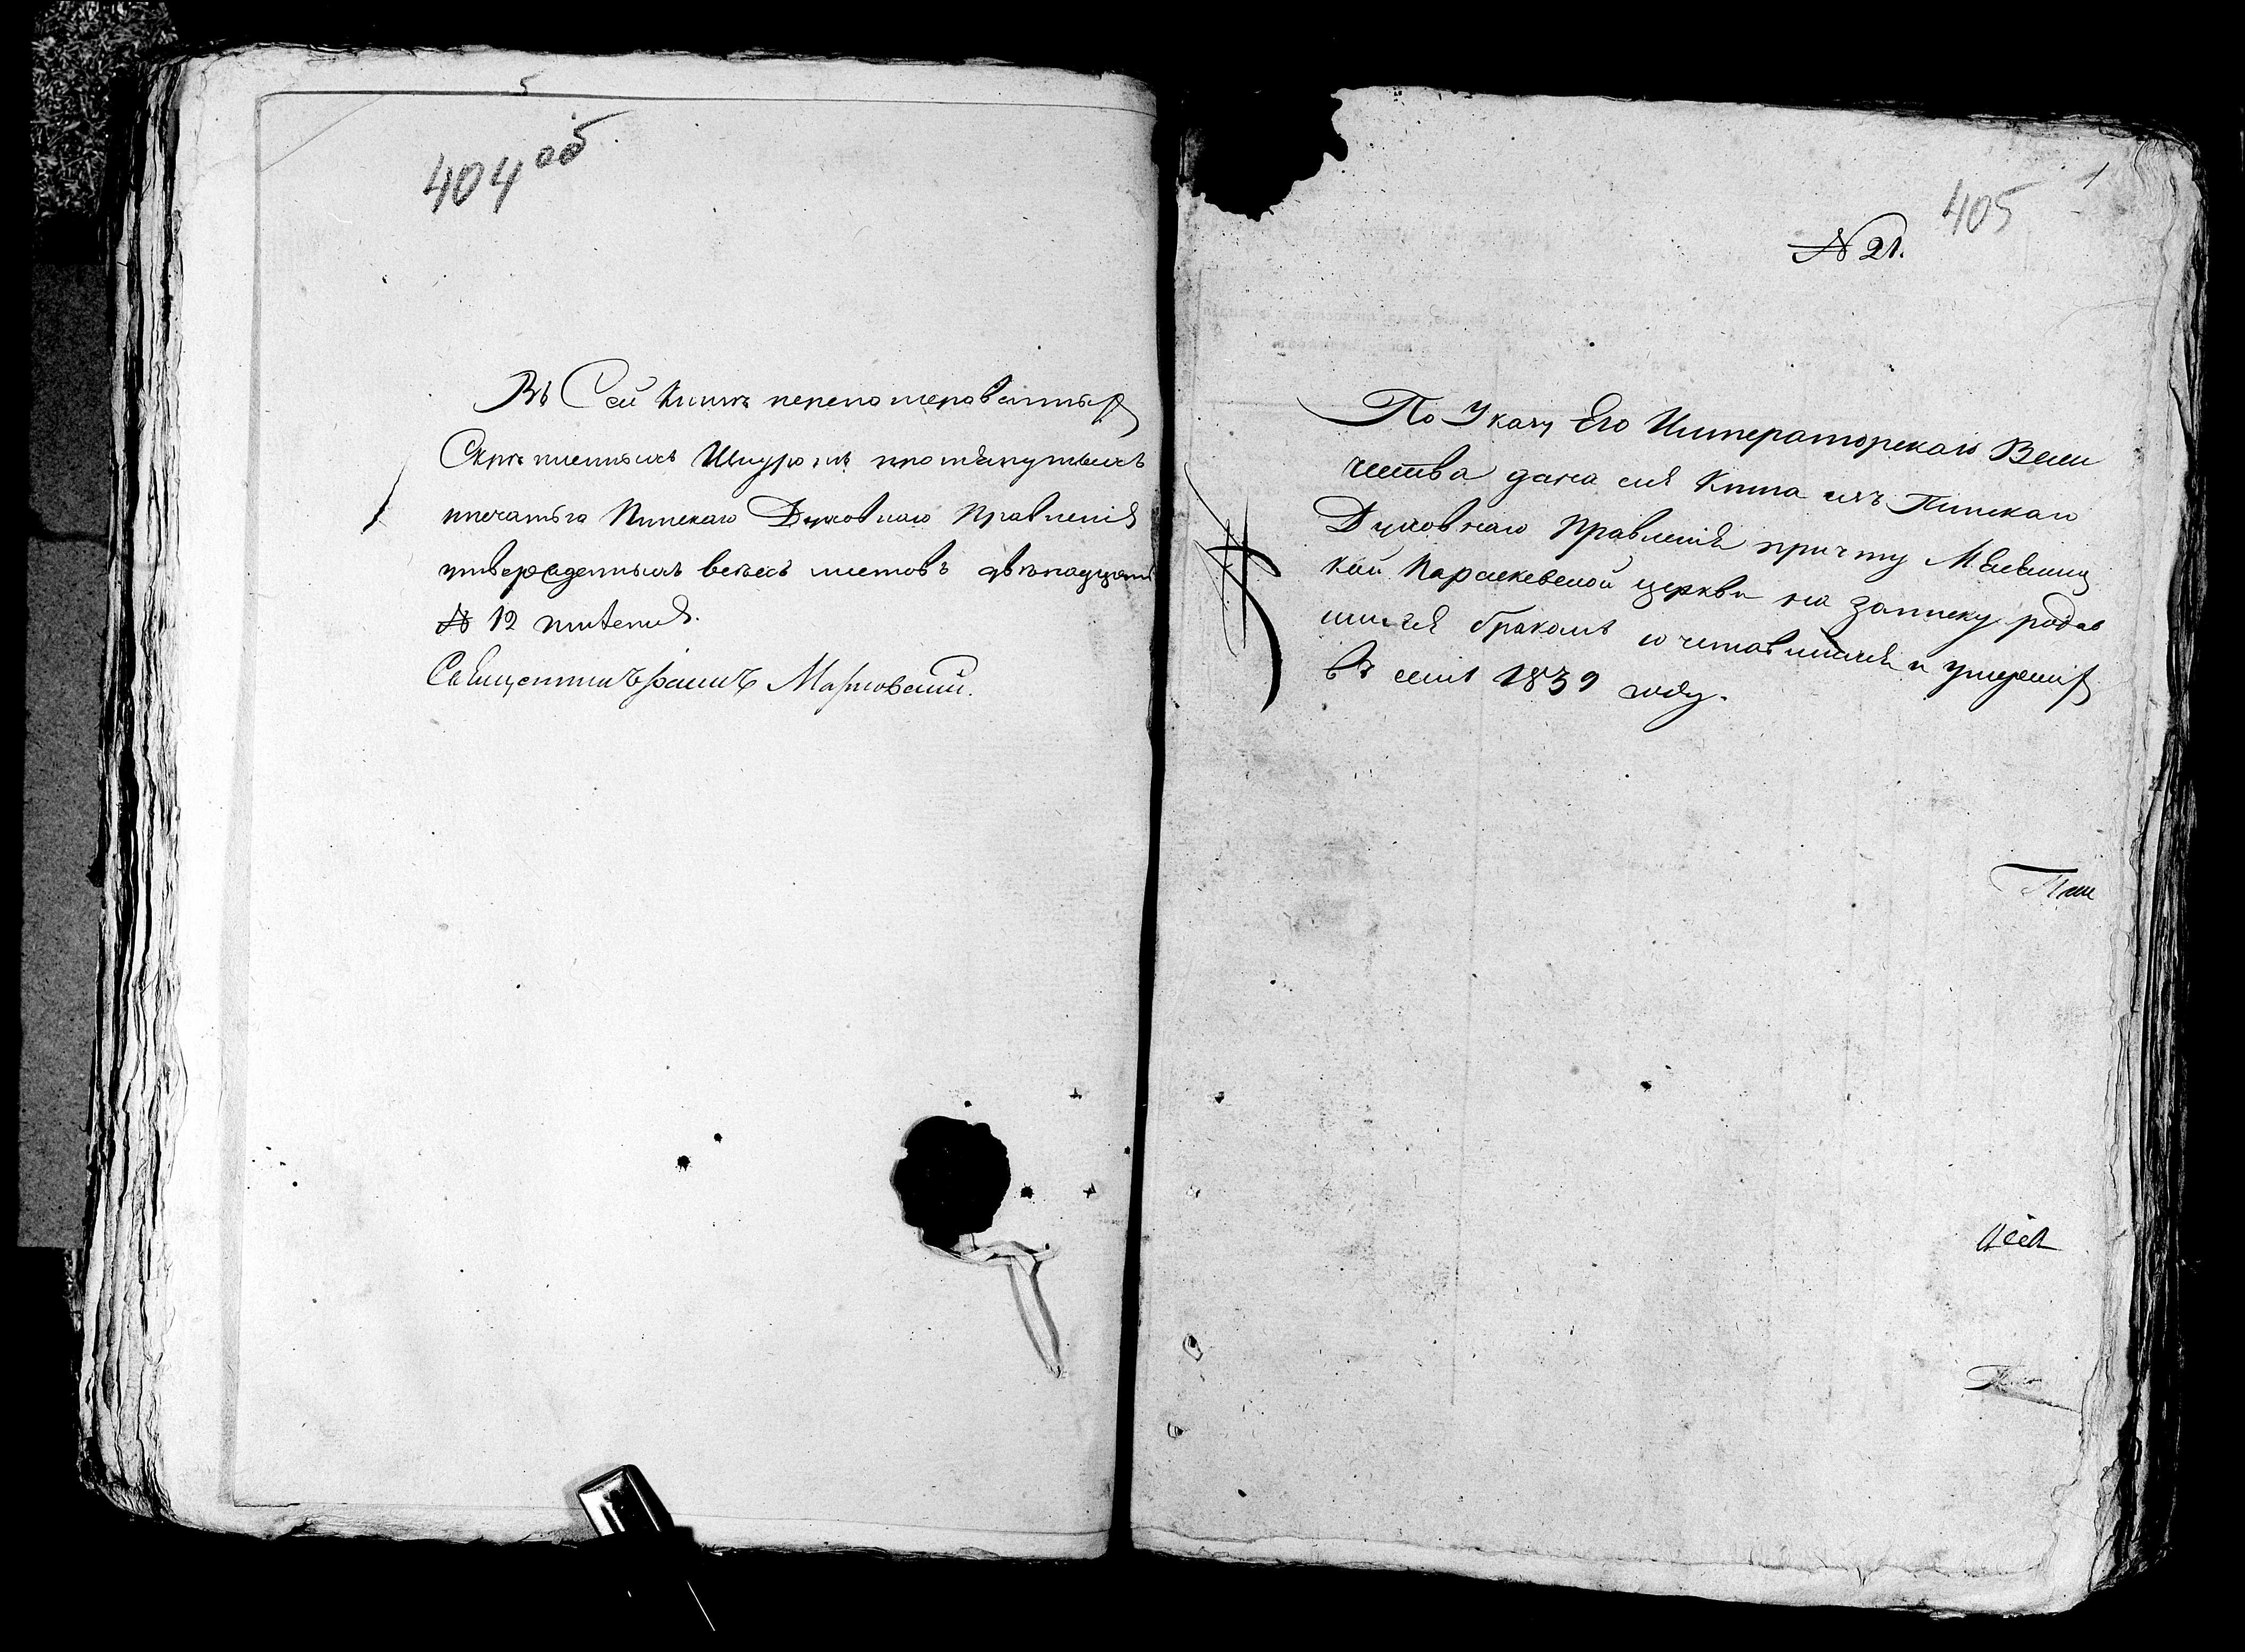 5
404 об
Въ Сей Книгѣ переномерованныхъ
Скрѣпленныхъ Шнуромъ протянутыхъ
печатью Пинскаго Духовнаго Правленія
утвержденныхъ всѣхъ листовъ двѣнадцать
№ 12 
Священникъ Марковскій.
1
405
№ 21.
По Указу Его Императорскаго Вели
чества дана сія Книга изъ Пинскаго
Духовнаго Правленія причту
кой Параскевской церкви на записку родив
шихся бракомъ сочетавшихся и умершихъ
въ семъ 1839 году.